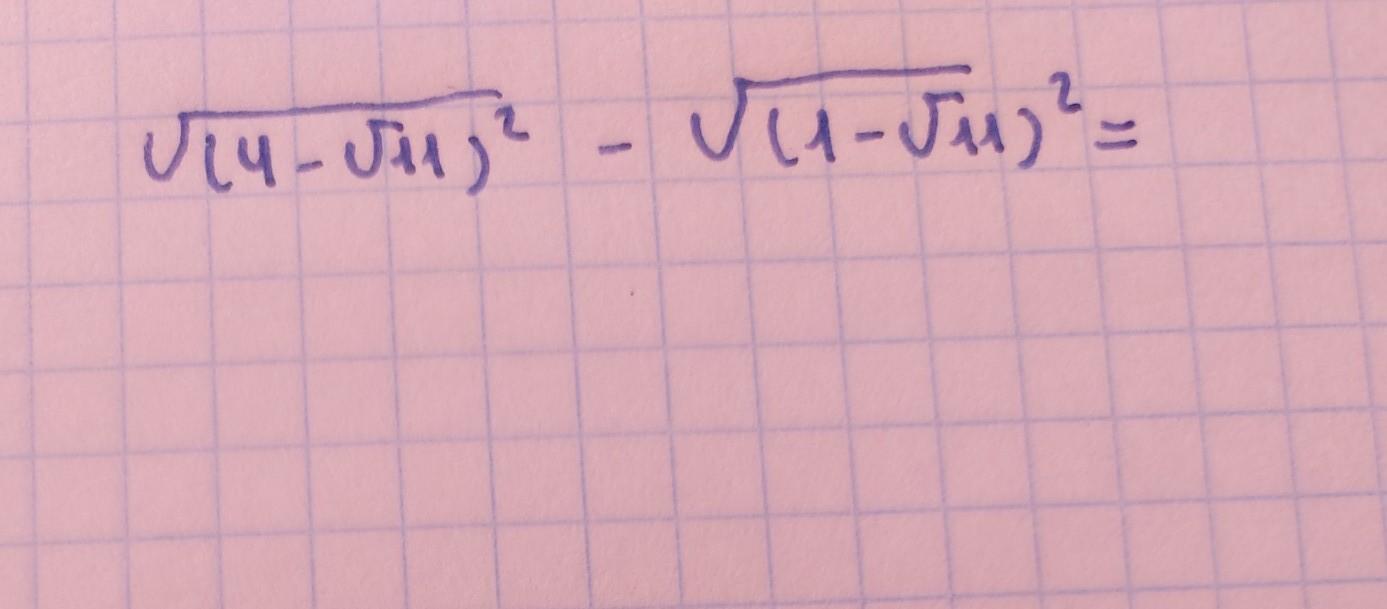 √(4-√11)² - √(1-√11)² =